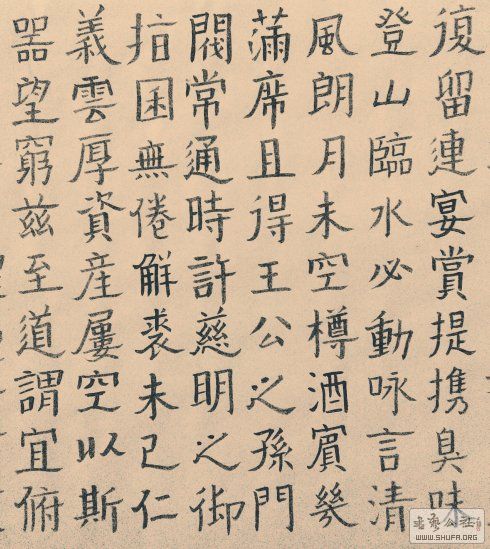 復留連宴賞提携臭味
登山臨水必動咏言清
風朗月未空樽酒賓幾
滿席且得王公之孫門
閥常通時許慈明之御
指囷無倦解裘未已仁
義雲厚資産屢空以斯
器望窮兹至道謂宜俯
书艺公社
WWW.SHUFA.ORG